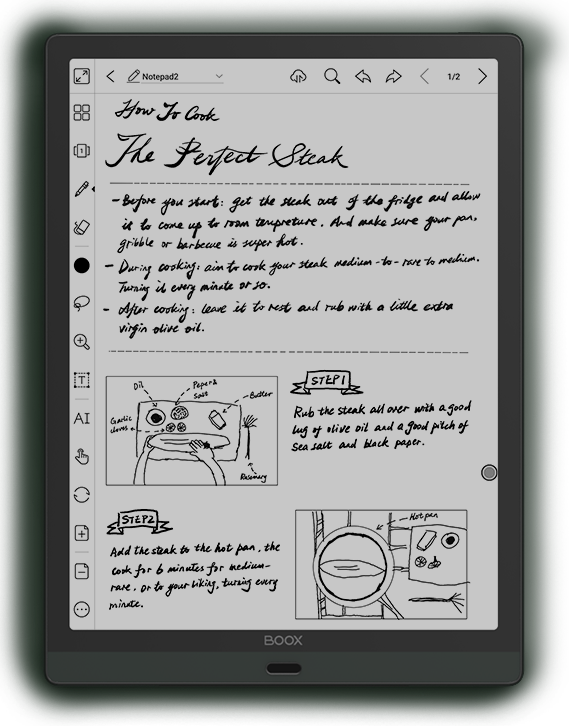 Notepad2
1/2
How To Cook
The Perfect Steak
- Before you start: get the steak out of the fridge and allow
it to come up to room tempreture. And make sure your pan,
gribble or barbecue is super hot.
- During cooking: aim to cook your steak medium-to-rare to medium.
Turning it every minute or so.
- After cooking: leave it to rest and rub with a little extra
virgin olive oil.
Oil
Peper &
Salt
Butter
Gaelic
cloves
Rosemary
STEP1
Rub the steak all over with a good
lug of olive oil and a good pitch of
Sea salt and black paper.
STEP2
Add the steak to the hot pan. the
cook for 6 minutes for medium-
rare, or to your liking, turning every
minute.
Hot pan
AI
BOOX